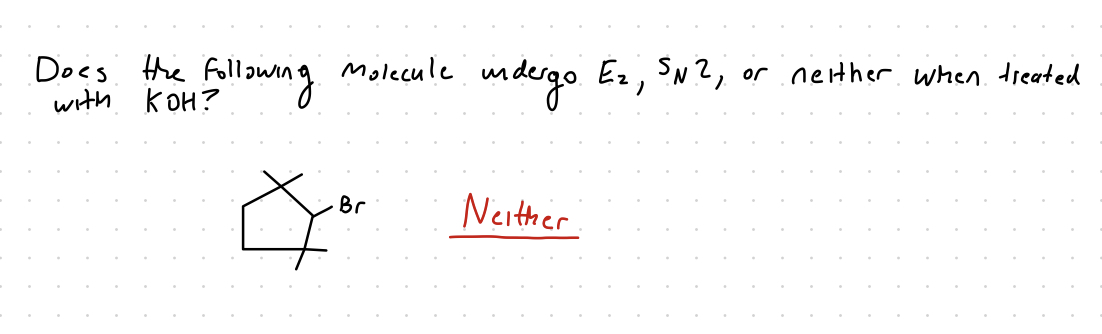 Does the following molecule undergo E2, SN2, or neither when treated
with KOH?
Br
Neither